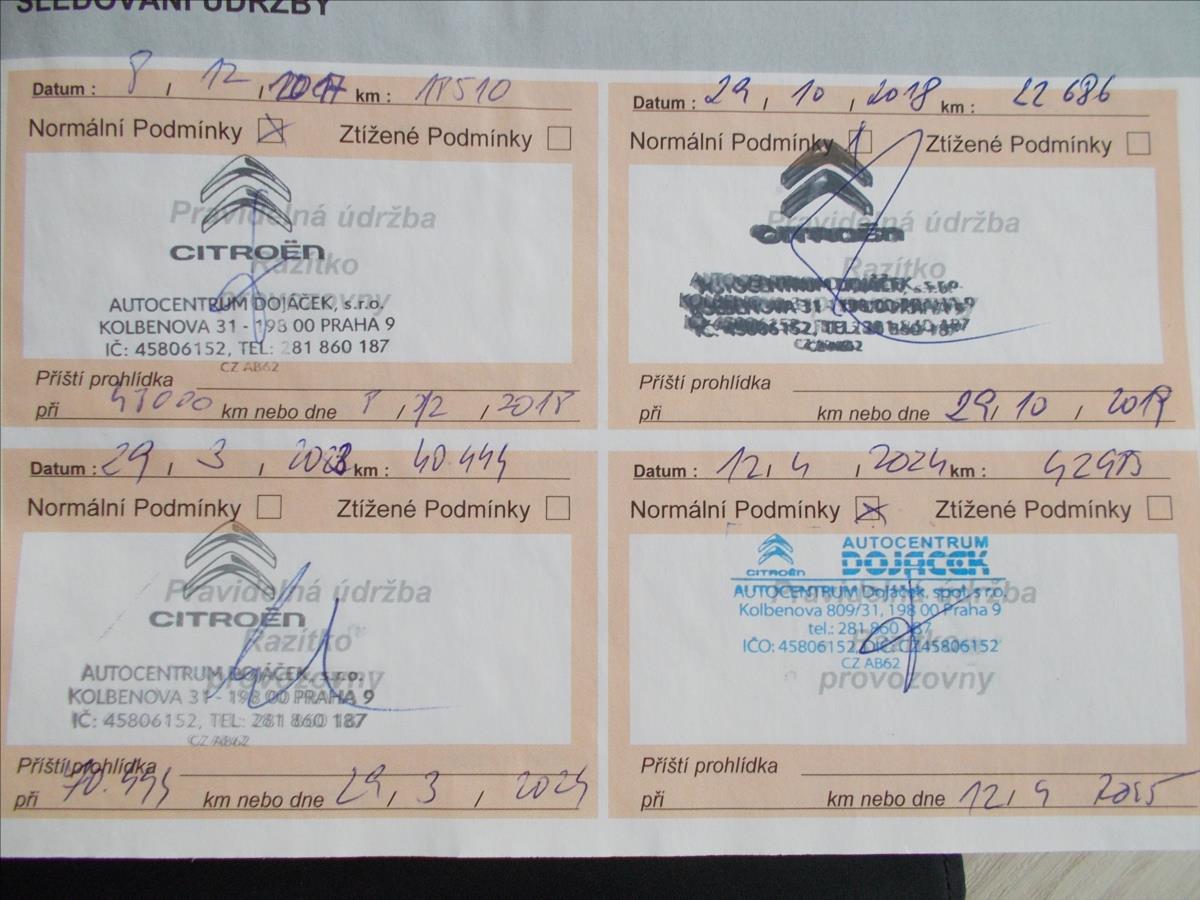 SLEDOVÁNÍ ÚDRŽBY
Datum : 8 / 12 / 2017 km : 18510
Normální Podmínky Ztížené Podmínky
Pravidelná údržba
CITROËN
Razítko
provozovny
AUTOCENTRUM DOJÁČEK, s.r.o.
KOLBENOVA 31 - 198 00 PRAHA 9
IČ: 45806152, TEL: 281 860 187
CZ AB62
Příští prohlídka
při km nebo dne 8 / 12 / 2018
Datum : 29 / 10 / 2018 km : 22 686
Normální Podmínky Ztížené Podmínky
Pravidelná údržba
CITROËN
Razítko
AUTOCENTRUM DOJÁČEK, s.r.o.
KOLBENOVA 31 - 198 00 PRAHA 9
IČ: 45806152, TEL: 281 860 187
CZ AB62
Příští prohlídka
při km nebo dne 29 / 10 / 2019
Datum : 29 / 3 / 2023 km : 40.444
Normální Podmínky Ztížené Podmínky
Pravidelná údržba
CITROËN
Razítko
provozovny
AUTOCENTRUM DOJÁČEK, s.r.o.
KOLBENOVA 31 - 198 00 PRAHA 9
IČ: 45806152, TEL: 281 860 187
CZ AB62
Příští prohlídka
při 70.444 km nebo dne 29 / 3 / 2024
Datum : 12 / 4 / 2024 km :
Normální Podmínky Ztížené Podmínky
CITROËN
AUTOCENTRUM
DOJÁČEK
Pravidelná údržba
AUTOCENTRUM Dojáček, spol. s r.o.
Kolbenova 809/31, 198 00 Praha 9
tel.: 281 860 187
Razítko
IČO: 45806152, DIČ: CZ45806152
CZ AB62
provozovny
Příští prohlídka
při km nebo dne 12 / 4 2025